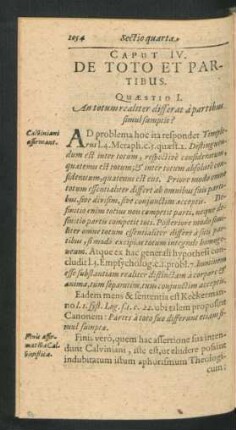 1054 Sectio quarta.
CAPUT IV.
DE TOTO ET PAR-
TIBUS.
QUÆSTIO I.
An totum realiter differat à partibus
simul sumptis?
Calviniani
affirmant.
AD problema hoc ita respondet Temple-
rus l. 4. Metaph. c. 5. quæst. 2. Distinguen-
dum est inter totum, respective consideratum
quatenus est totum, & inter totum absolute con-
sideratum, quatenus est ens. Priore modo omne
totum essentialiter differt ab omnibus suis parti-
bus, sive divisim, sive conjunctim acceptis.
finitio enim totius non competit parti, neque de-
finitio partis competit toti. Posteriore modo
omne totum essentialiter differt à suis par-
tibus, si modò excipiat totum integrale homoge-
neum. Atque ex hac generali hypothesi con-
cludit l. 4. Empsycholog. c. 2. probl. 7. hominem
esse substantiam realiter distinctam à corpore &
anima, tum separatim, tum conjunctim acceptis.
Eadem mens & sententia est Keckerman-
no l. 1. syst. Log. s. 1. c. 22. ubi talem proposuit
Canonem: Partes à toto suo differunt etiam si-
mul sumptæ.
Finis affir-
mat
Finis verò, quem hac assertione suâ inten-
dunt Calviniani, iste est, ut eludere possint
indubitatum istum aphorismum Theologi-
cum: